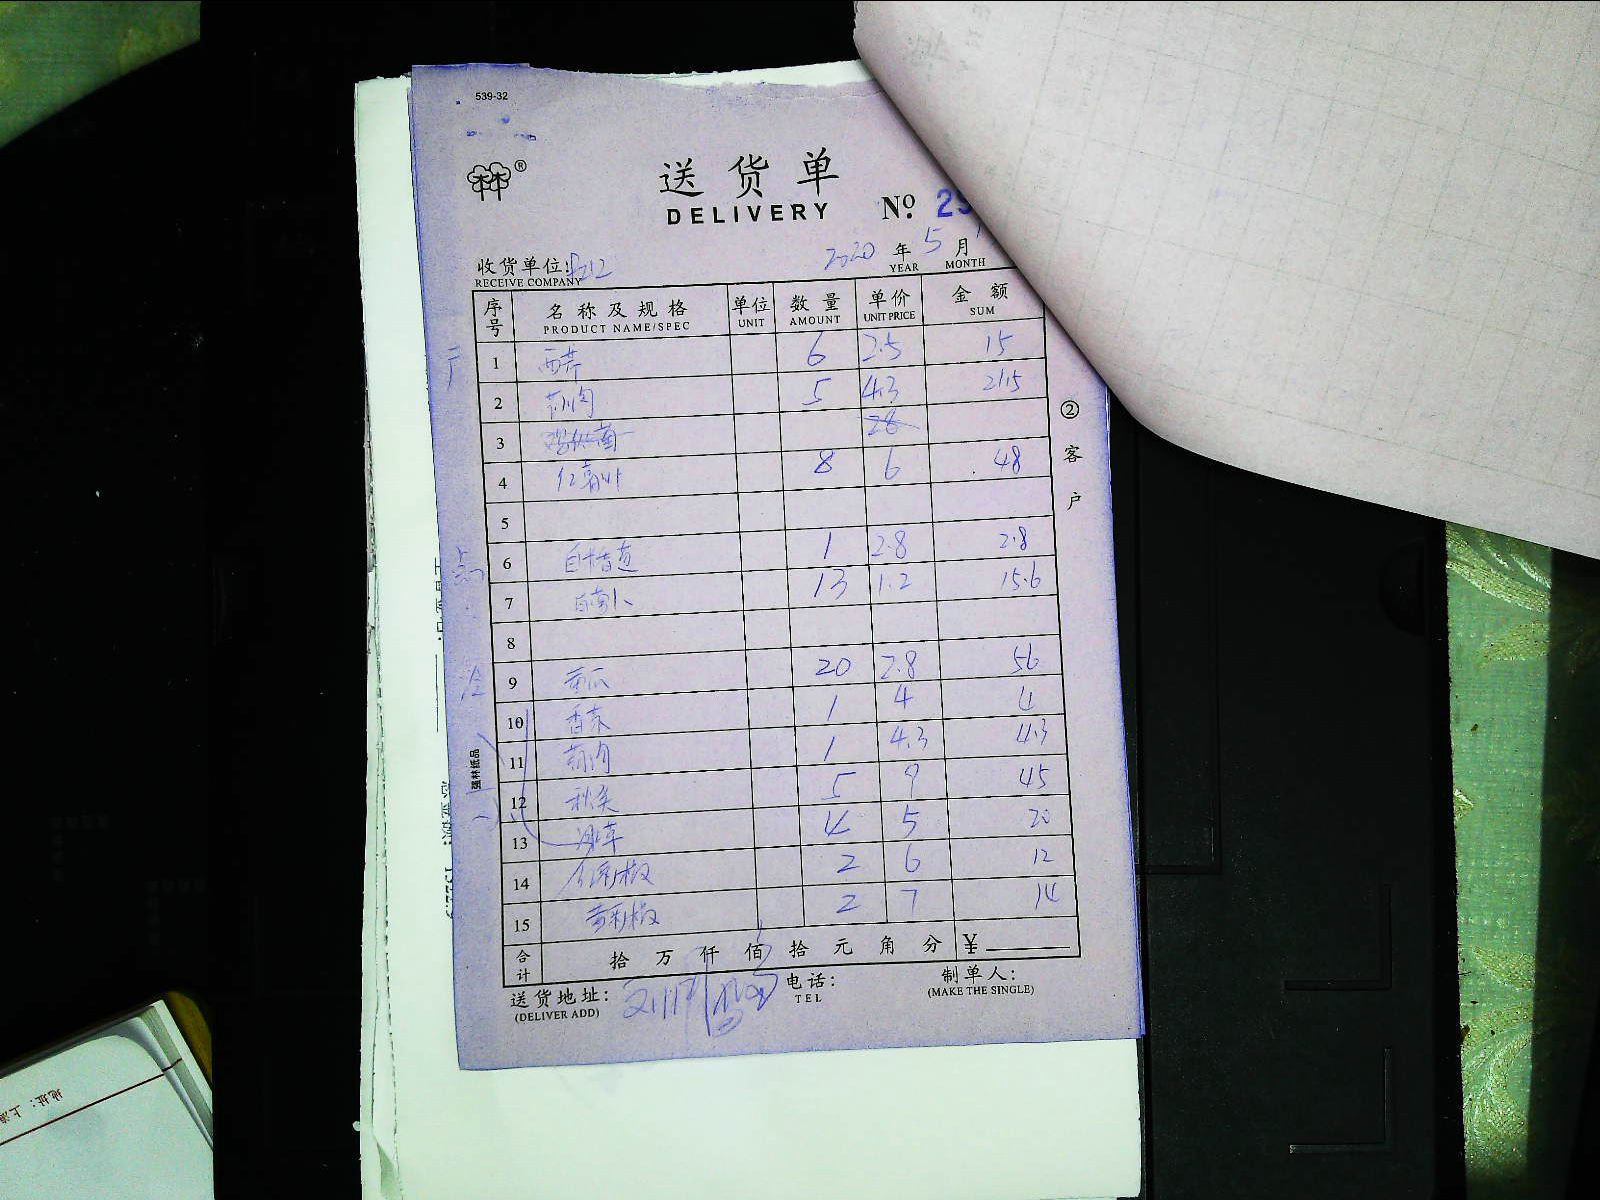 539-32
林®
送货单
DELIVERY
№ 29
收货单位:
RECEIVE COMPANY
2020 年 5 月
YEAR MONTH
序号 名称及规格 单位 数量 单价 金额
PRODUCT NAME/SPEC UNIT AMOUNT UNIT PRICE SUM
1 西芹 6 2.5 15
2 5 4.3 21.5
3 28
4 红 8 6 48
5
6 1 2.8 2.8
7 白萝卜 13 1.2 15.6
8
9 黄瓜 20 2.8 56
10 香菜 1 4 4
11 1 4.3 4.3
12 秋葵 5 9 45
13 冰草 4 5 20
14 红彩椒 2 6 12
15 黄彩椒 2 7 14
合计 拾 万 仟 佰 拾 元 角 分 ¥
送货地址: 电话: 制单人:
(DELIVER ADD) TEL (MAKE THE SINGLE)
② 客户
强林纸品
点
冷
地址:上海